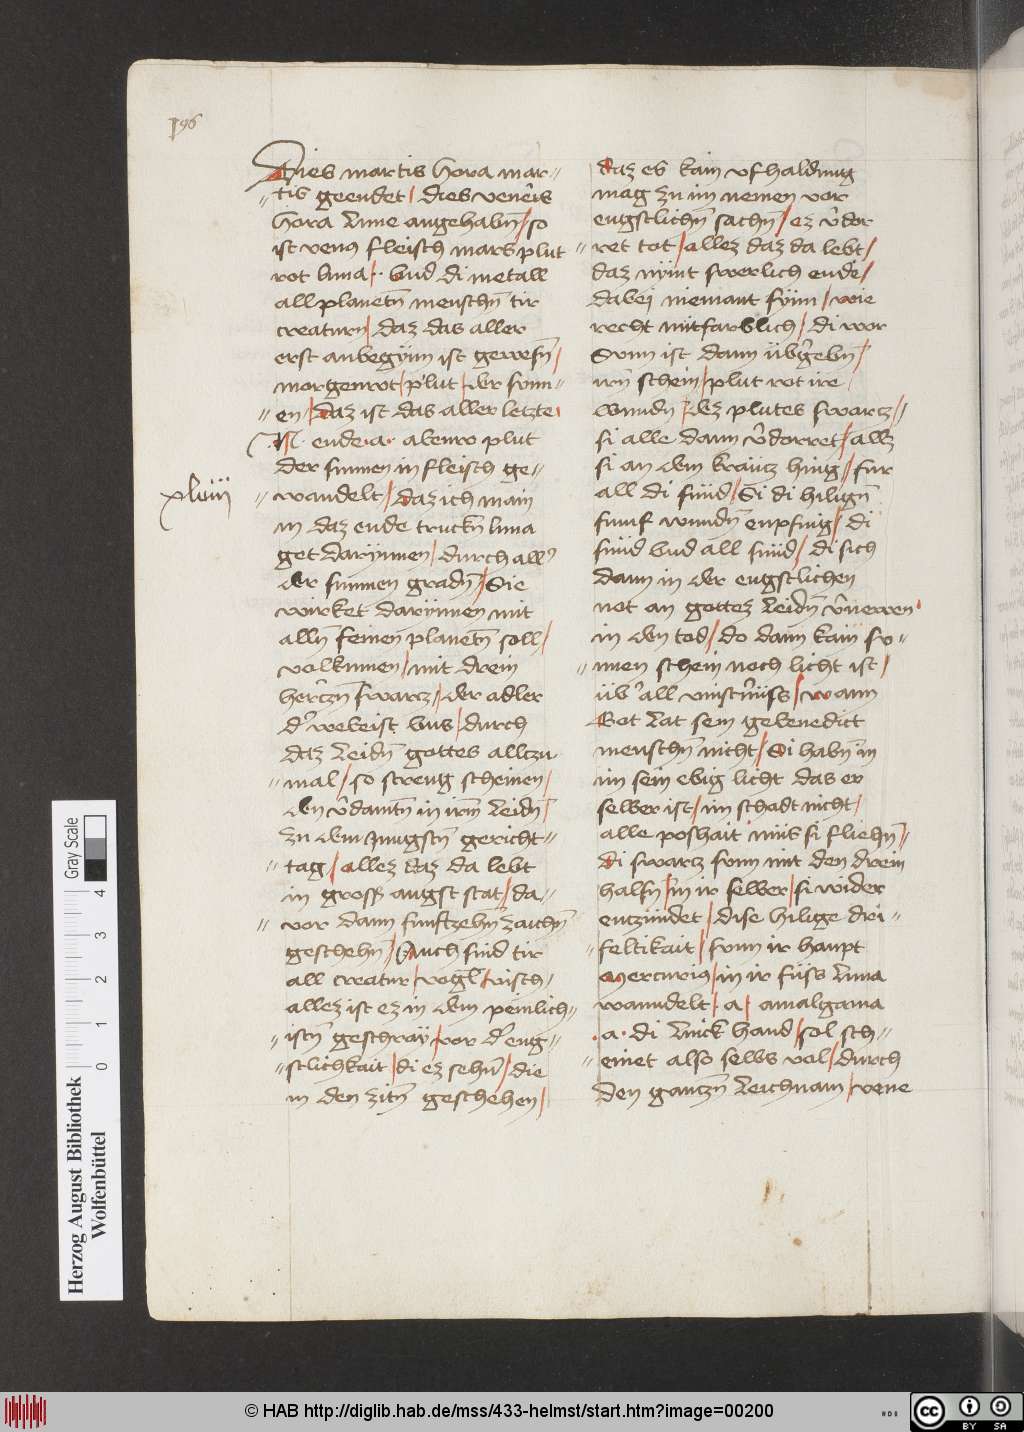 196
Dies martis hora mar-
tis geendet / dies veneris
hora Lune angehabn / so
ist venus fleisch mars plut
rot luna / Vnd di metall
all planetn menschn tir
creaturn / daz das aller
erst anbegynn ist gewesn /
morgenrot / plut / der sunn-
en / daz ist das aller letzte
ende · a · abenro plut
der sunnen in fleisch ge-
xlviij
wandelt / daz ich main
in daz ende truckn luna
get darynnen / durch all
der sunnen gradn / Sie
wirket darynnen mit
alln seinen planetn soll /
volkumen / mit drein
herczn swarcz / der adler
durch
daz Leidn gottes allczu
mal / so streng scheinen /
den vdamtn in irm Leidn /
zu dem jungstn gericht-
tag / allez daz da lebt
in gross angst stat / da-
vor dann funftzehn zaichn
geschehn / Auch sind tir
all creatur / vogl / visch /
allez ist ez in dem peinlich-
istn geschray / vor der eng-
stlichkait / di ez sehn / die
in den zitn geschehen /
daz es kain vfhaldung
mag zu im nemen vor
engstlichn sachn / ez vdor
ret tot / allez daz da lebt /
daz nymt swerlich ende /
dabei niemant synn / wie
recht mitfarblich / di vor
Sunn ist dann übgebn /
irn schein / plut rot ire
wundn / dez plutes swarcz /
si alle dann vdorret / allz
si an dem kraücz hing / fur
all di sünd / Si di hilign
funf wundn enpfing / di
sünd vnd all sünd / di sich
dann in der engstlichen
not an gottez Leidn vnewen
in den tod / do dann kain su-
nnen schein noch licht ist /
üb all vinstnüss / wann
Got Lat sein gebenedict
menschn nicht / Si habn in
im sein ebig licht das er
selber ist / im schadt nicht /
alle poshait müs si fliehn /
di swarcz sunn mit den drein
halsn / in ir selber / si wider
enczündet / dise hilige dri-
feltikait / sunn ir haupt
mercurius / in ir füss Luna
wanndelt / · a / amalgama
· a · di Linck hand / sol sch-
einet also selbs vol / durch
den ganczn Leichnam / vene
Herzog August Bibliothek
Wolfenbüttel
0 1 2 3 4
Gray Scale
© HAB http://diglib.hab.de/mss/433-helmst/start.htm?image=00200
HAB
cc BY SA